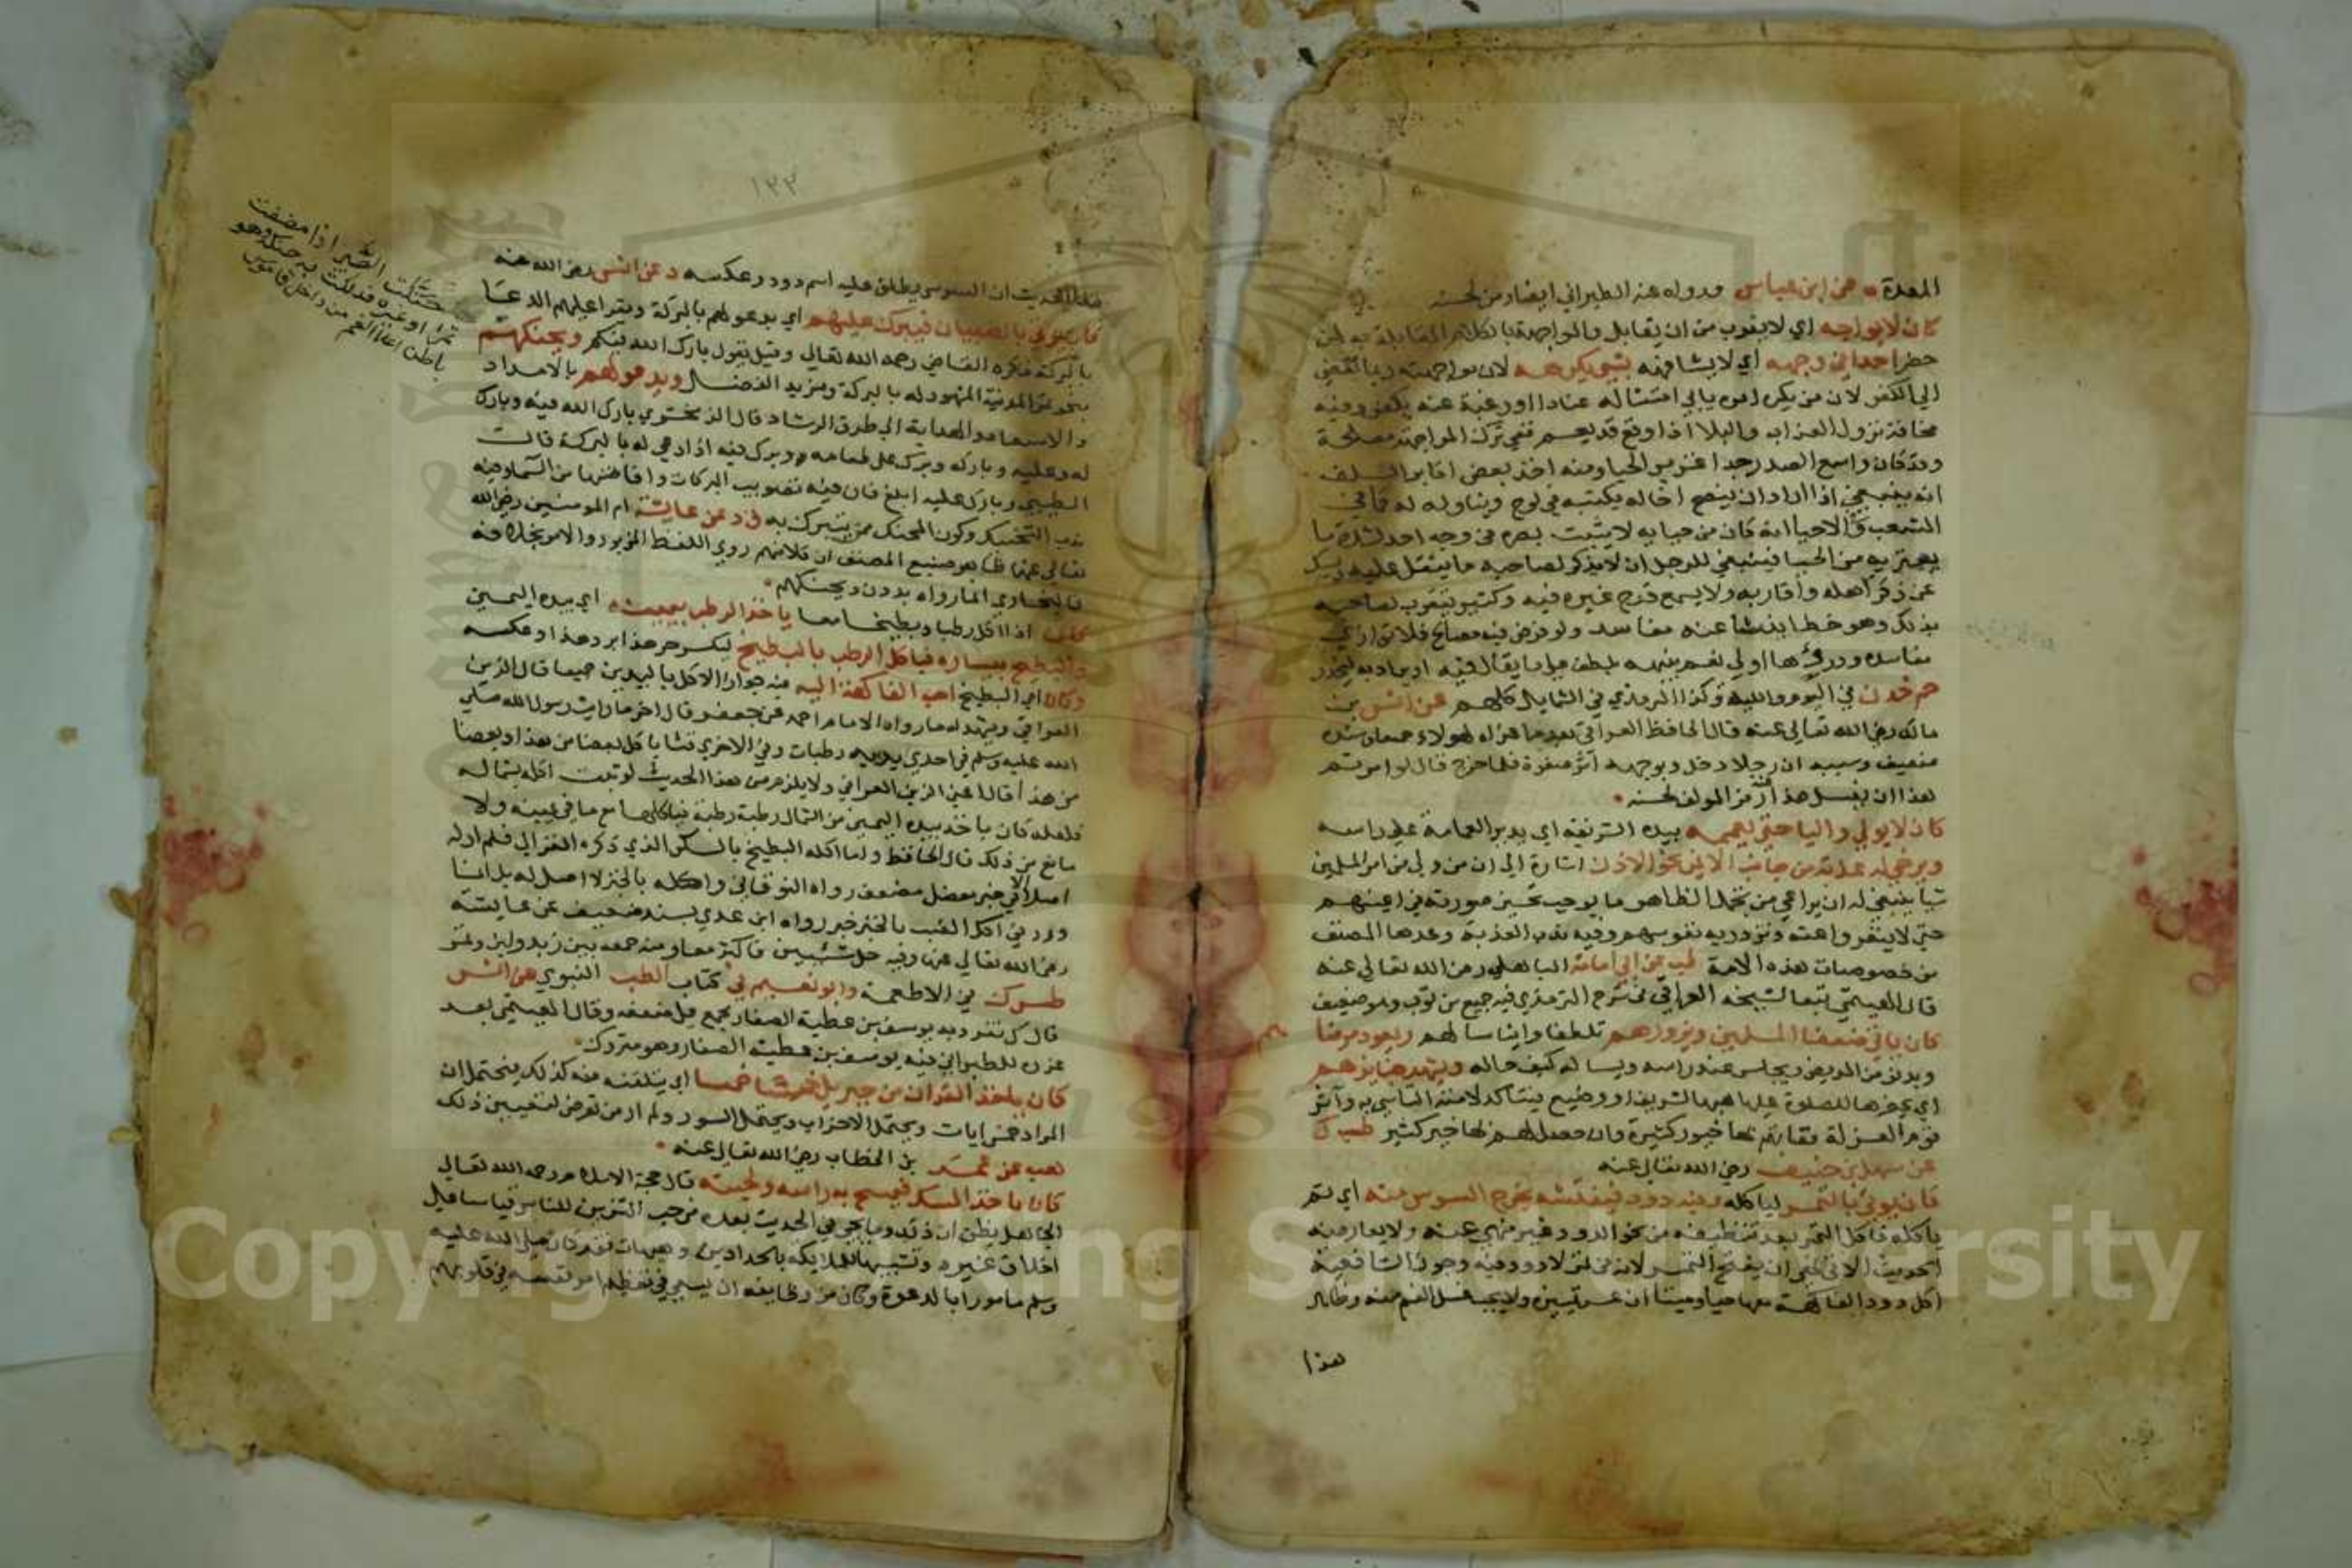 المعدة عن ابن عباس ورواه عنه الطبراني ايضا رمز لحسنه
كان لا يواجه اي لا يقرب من ان يقابل والمواجهة بالكلام المقابلة به لمن
حضر احدا في وجهه اي لا يشافهه بشي يكرهه لان مواجهته ربما تفضي
الي الكفر لان من يكره امره يابي امتثاله عنادا او رغبة عنه يكفر وفيه
مخافة نزول العذاب والبلا اذا وقع قد يعم ففي ترك المواجهة مصلحة
وقد كان واسع الصدر جدا غزير الحيا ومنه اخذ بعض اكابر السلف
انه ينبغي اذا اراد ان ينصح اخا له يكتبه في لوح ويناوله له كما في
الشعب وفي الاحيا انه كان من حيايه لا يثبت بصره في وجه احد لشدة ما
يعتريه من الحيا فينبغي للرجل ان لا يذكر لصاحبه ما يثقل عليه ويمسك
عن ذكر اهله واقاربه ولا يسمع قدح غيره فيه وكثير يتقرب لصاحبه
بذلك وهو خطا ينشا عنه مفاسد ولو فرض فيه مصالح فلا توازي
مفاسده ودرؤها اولي نعم ينبهه بلطف علي ما يقال فيه او يراد به ليحذر
حم خد ن في اليوم والليلة وكذا الترمذي في الشمايل كلهم عن انس بن
مالك رضي الله تعالي عنه قال الحافظ العراقي بعد ما عزاه لهولاء جميعا وسنده
ضعيف وسببه ان رجلا دخل وبوجهه اثر صفرة فلما خرج قال لو امرتم
هذا ان يغسل هذا عنه رمز المولف لحسنه
كان لا يولي واليا حتي يعممه بيده الشريفة اي يدير العمامة علي راسه
ويرخي له عذبة من جانب الايمن نحو الاذن اشارة الي ان من ولي من امر المسلمين
شيا ينبغي له ان يراعي من تجمل الظاهر ما يوجب تحسين صورته في اعينهم
حتي لا ينفروا عنه وتزدريه نفوسهم وفيه ندب العذبة وعدها المصنف
من خصوصيات هذه الامة طب عن ابي امامة الباهلي رضي الله تعالي عنه
قال الهيثمي تبعا لشيخه العراقي في شرح الترمذي فيه جميع بن ثوب وهو ضعيف
كان ياتي ضعفا المسلمين ويزورهم تلطفا وايناسا لهم ويعود مرضاهم
ويدنو من المريض ويجلس عند راسه ويسا له كيف حاله ويشهد جنايزهم
اي يحضرها للصلوة عليها هبها لشريف او وضيع فيتاكد لامته التاسي به وآثر
قوم العزلة ففاتهم بها خيور كثيرة وان حصل لهم بها خير كثير طب ك
عن سهل بن حنيف رضي الله تعالي عنه
كان يوتي بالتمر لياكله وفيه دود فيفتشه يخرج السوس منه اي ثم
ياكله فاكل التمر بعد تنظيفه من نحو الدود غير منهي عنه ولا يعارضه
الحديث الاتي نهي ان يفتش التمر لانه في تمر لا دود فيه وجوز الشافعية
اكل دود الفاكهة معها حيا وميتا ان عسر تمييزه ولا يجب غسل الفم منه وظاهر
هذا
١٣٣
هذا الحديث ان السوس يطلق عليه اسم دود وعكسه د عن انس رضي الله عنه
كان يوتي بالصبيان فيبرك عليهم اي يدعو لهم بالبركة ويقرا عليهم الدعا
بالبركة ذكره القاضي رحمه الله تعالي وقيل يقول بارك الله فيكم ويحنكهم
بنحو تمر المدينة المشهود له بالبركة ومزيد الفضل ويدعو لهم بالامداد
والاسعاد والهداية الي طرق الرشاد قال الزمخشري بارك الله فيه وبارك
له وعليه وباركه وبرك علي طعامه وبرك فيه اذا دعي له بالبركة قال
الطيبي وبارك عليه ابلغ فان فيه تصويب البركات وافاضتها من السما وفيه
ندب التحنيك وكون المحنك ممن يتبرك به ق د عن عايشة ام المومنين رضي الله
تعالي عنها ظاهر صنيع المصنف ان كلا منهم روي اللفظ المزبور والامر بخلافه
فالبخاري انما رواه بدون ويحنكهم
كان اذا اكل رطبا وبطيخا معا ياخذ الرطب بيمينه اي بيده اليمين
والبطيخ بيساره فياكل الرطب بالبطيخ ليكسر حر هذا برد هذا وعكسه
وكان اي البطيخ احب الفاكهة اليه فيه جواز الاكل باليدين جميعا قال الزين
العراقي ويشهد له ما رواه الامام احمد عن جعفر قال اخر ما رايت رسول الله صلي
الله عليه وسلم في احدي يديه رطبات وفي الاخري قثا ياكل بعضا من هذا وبعضا
من هذا قال اعني الزين العراقي ولا يلزم من هذا الحديث لو ثبت اكله بشماله
فلعله كان ياخذ بيده اليمين من الشمال رطبة رطبة فياكلها مع ما في يمينه ولا
مانع من ذلك قال الحافظ واما اكله البطيخ بالسكر الذي ذكره الغزالي فلم ار له
اصلا الا في خبر معضل مضعف رواه النوقاني واكله بالخبز لا اصل له بل انما
ورد في اكل العنب بالخبز خبر رواه ابن عدي بسند ضعيف عن عايشة
رضي الله تعالي عنها وفيه حل شيئين فاكثر معا ومنه جمعه بين زبد ولبن وتمر
طس ك في الاطعمة وابو نعيم في كتاب الطب النبوي عن انس
قال ك تفرد به يوسف بن عطية الصفار مجمع علي ضعفه وقال الهيثمي بعد
عزوه للطبراني فيه يوسف بن عطية الصفار وهو متروك
كان ياخذ القران من جبريل خمسا خمسا اي يتلقنه منه كذلك فيحتمل ان
المراد خمس ايات ويحتمل الاحزاب ويحتمل السور ولم ار من تعرض لتعيين ذلك
هب عن عمر بن الخطاب رضي الله تعالي عنه
كان ياخذ المسك فيمسح به راسه ولحيته قال حجة الاسلام رحمه الله تعالي
الجاهل يظن ان ذلك وما يجي في الحديث بعده من حب التزين للناس قياسا علي
اخلاق غيره وتشبيها للملايكه بالحدادين وهيهات فقد كان صلي الله عليه
وسلم مامورا بالدعوة وكان من وظايفه ان يسعي في تعظيم امر نفسه في قلوبهم
حنكت الصبي اذا مضغت
تمرا او غيره فدلكت به حنكه وهو
باطن اعلا الفم من داخل قاموس
Copyright © King Saud University
1957